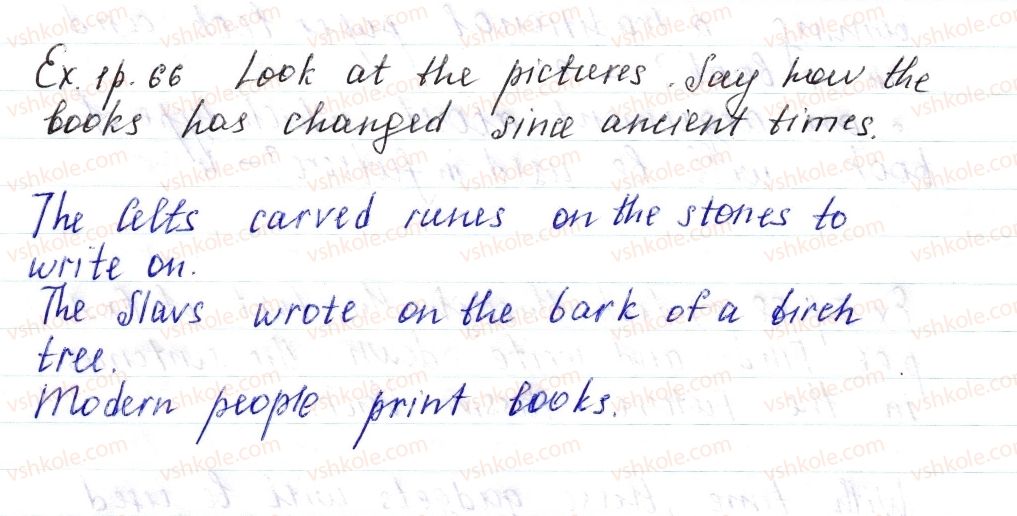 Ex. 1p. 66 Look at the pictures. Say how the
books has changed since ancient times.
The Celts carved runes on the stones to
write on.
The Slavs wrote on the bark of a birch
tree.
Modern people print books.